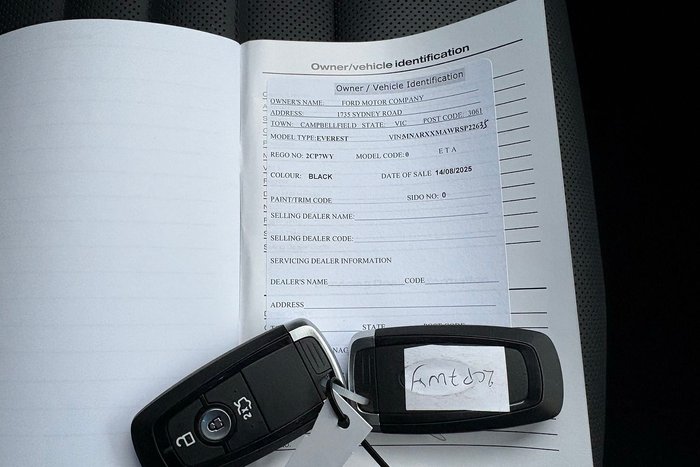 Owner/vehicle identification
Owner / Vehicle Identification
OWNER'S NAME: FORD MOTOR COMPANY
ADDRESS: 1735 SYDNEY ROAD
TOWN: CAMPBELLFIELD STATE: VIC POST CODE: 3061
MODEL TYPE: EVEREST VIN: MNARXXMAWRSP22635
REGO NO: 2CP7WY MODEL CODE: 0 E T A
COLOUR: BLACK DATE OF SALE 14/08/2025
PAINT/TRIM CODE SIDO NO: 0
SELLING DEALER NAME:
SELLING DEALER CODE:
SERVICING DEALER INFORMATION
DEALER'S NAME CODE
ADDRESS
STATE
2X
2CP7WY